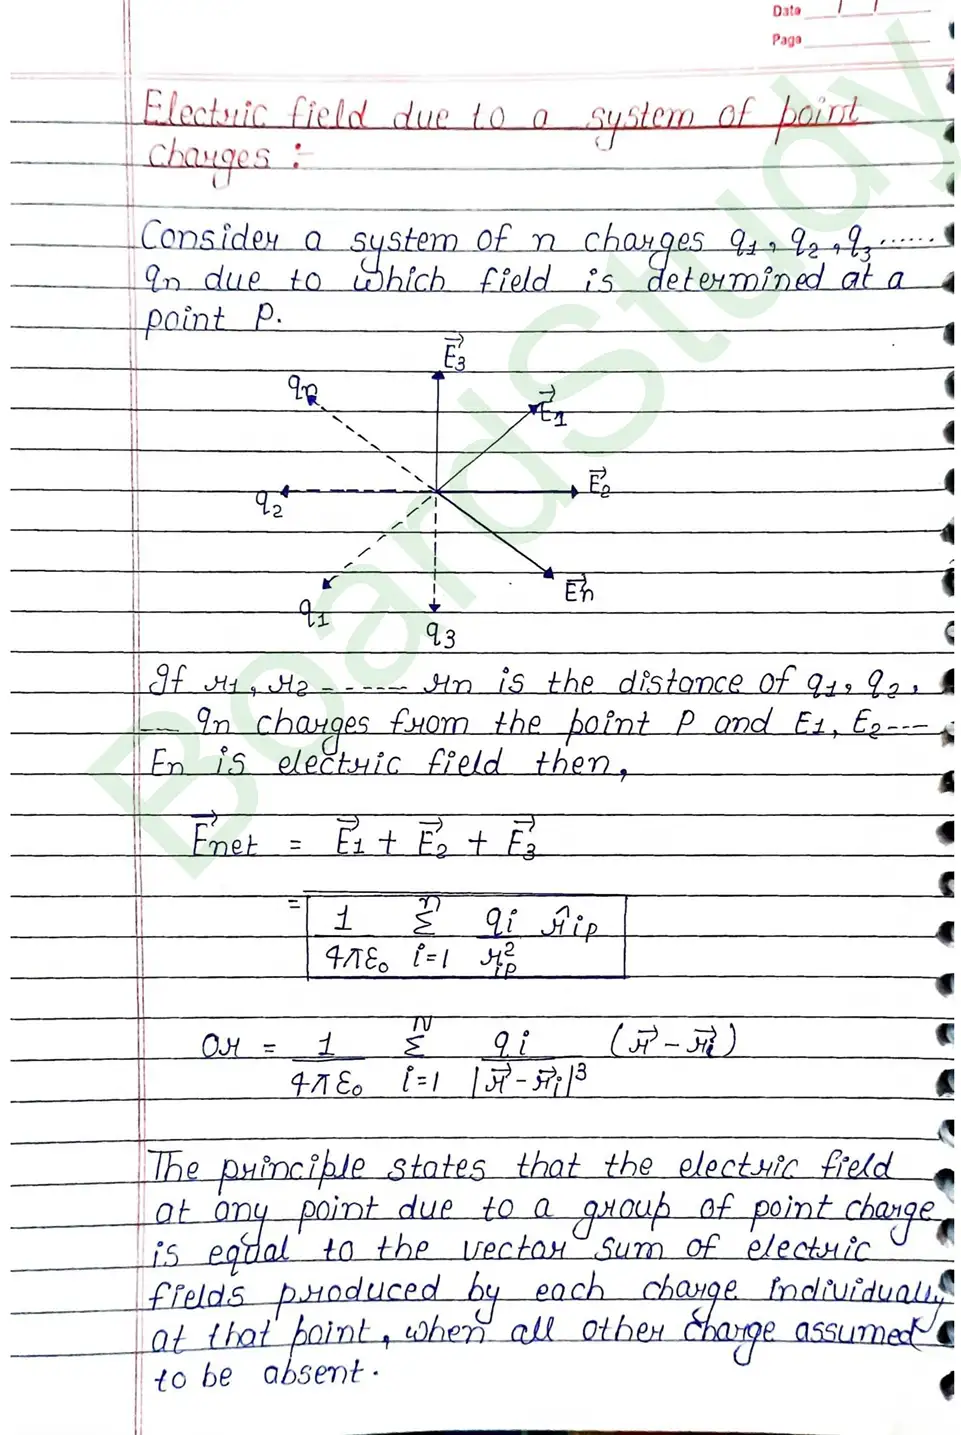 Date
Page
Electric field due to a system of point
charges :-
Consider a system of n charges q1, q2, q3......
qn due to which field is determined at a
point P.
E⃗3
qn
E⃗1
E⃗2
q2
E⃗n
q1
q3
If r1, r2 ------ rn is the distance of q1, q2,
--- qn charges from the point P and E1, E2---
En is electric field then,
E⃗net = E⃗1 + E⃗2 + E⃗3
= 1/4πε₀ n Σ i=1 qi/r²ip r̂ip
Or = 1/4πε₀ N Σ i=1 qi/|r⃗ - r⃗i|³ (r⃗ - r⃗i)
The principle states that the electric field
at any point due to a group of point charge
is equal to the vector sum of electric
fields produced by each charge individually
at that point, when all other charge assumed
to be absent.
BoardStudy